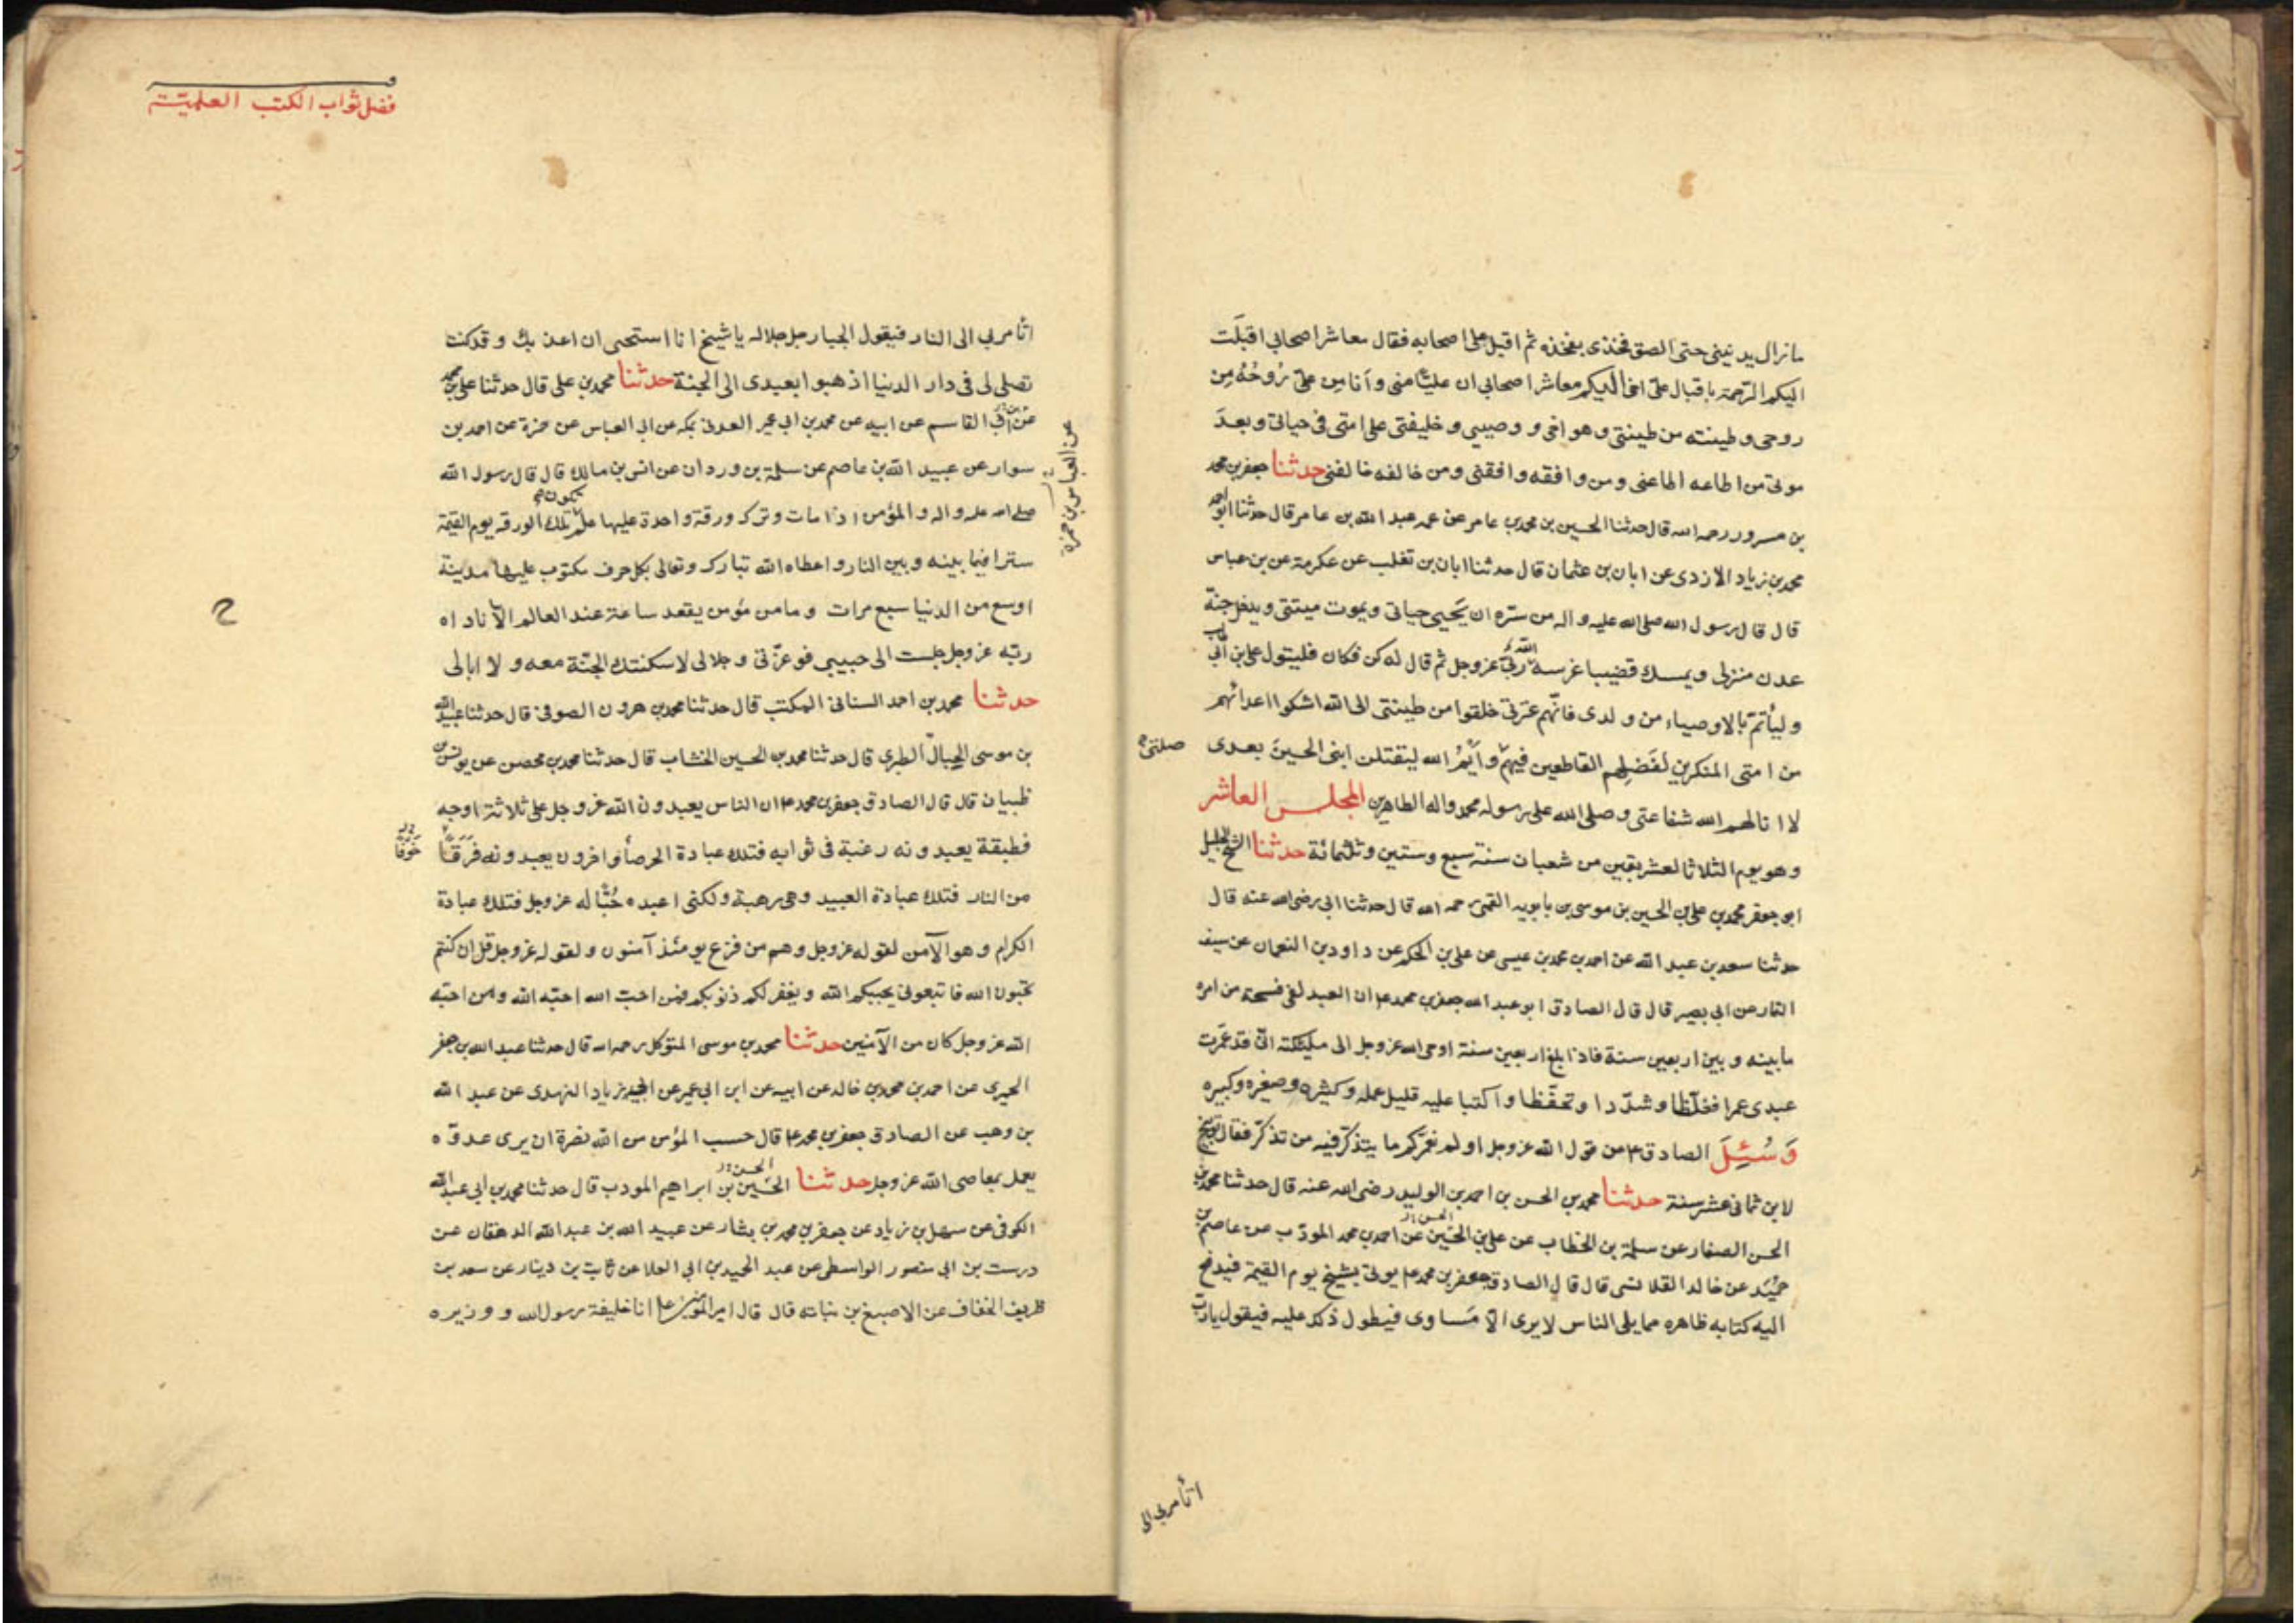 ما زال يدنينى حتى الصق فخذى بفخذه ثم اقبل على اصحابه فقال معاشر اصحابى اقبلَت
اليكم الرّحمة باقبال علىّ اخى اليكم معاشر اصحابى ان عليّاً منى وأنا مِن علىّ رُوحُهُ مِن
روحى وطينته من طينتى وهو اخى ووصيى وخليفتى على امتى فى حياتى وبعدَ
موتى من اطاعه اطاعنى ومن وافقه وافقنى ومن خالفه خالفنى حدثنا جعفر بن محمد
بن مسرور رحمه الله قال حدثنا الحسين بن محمد بن عامر عن عمه عبد الله بن عامر قال حدثنا ابو احمد
محمد بن زياد الازدى عن ابان بن عثمان قال حدثنا ابان بن تغلب عن عكرمة عن بن عباس
قال قال رسول الله صلى الله عليه واله من سرّه ان يَحيى حياتى ويموت ميتتى ويدخل جنّة
عدن منزلى ويمسك قضيبا غرسه الله ربى عزوجل ثم قال له كن فكان فليتول على بن ابى طالب
وليأتمّ بالاوصياء من ولدى فانّهم عترتى خلقوا من طينتى الى الله اشكوا اعدائهم
من امتى المنكرين لفَضلِهم القاطعين فيهم وأيمُ الله ليقتلن ابنى الحسينَ بعدى
صلتى
لا انالهم الله شفاعتى وصلى الله على رسوله محمد واله الطاهرين المجلس العاشر
وهو يوم الثلاثا لعشر بقين من شعبان سنة سبع وستين وثلثمائة حدثنا الشيخ الجليل
ابو جعفر محمد بن على بن الحسين بن موسى بن بابويه القمى رحمه الله قال حدثنا ابى رضى الله عنه قال
حدثنا سعد بن عبد الله عن احمد بن محمد بن عيسى عن على بن الحكم عن داود بن النعمان عن سيف
التمار عن ابى بصير قال قال الصادق ابو عبد الله جعفر بن محمد ع ان العبد لفى فسحة من امره
ما بينه وبين اربعين سنة فاذا بلغ اربعين سنة اوحى الله عزوجل الى مليكته انى قد عمّرت
عبدى عمرا فغلّظا وشدّدا وتحفّظا واكتبا عليه قليل عمله وكثيره وصغيره وكبيره
وَسُئِلَ الصادق ع من قول الله عزوجل اولم نعمّركم ما يتذكّر فيه من تذكّر فقال توبيخ
لابن ثمانى عشر سنة حدثنا محمد بن الحسن بن احمد بن الوليد رضى الله عنه قال حدثنا محمد بن
الحسن الصفار عن سلمة بن الخطاب عن على بن الحسَين عن احمد بن محمد المودّب عن عاصم بن
حميَد عن خالد القلانسى قال قال الصادق جعفر بن محمد ع يوتى بشيخ يوم القيمة فيدفع
اليه كتابه ظاهره مما يلى الناس لا يرى الّا مَساوى فيطول ذلك عليه فيقول يا ربّ
اتأمر بى الى
فضل ثواب الكتب العلميّة
اتأمر بى الى النار فيقول الجبار جل جلاله يا شيخ انا استحى ان اعذبك وقد كنت
تصلى لى فى دار الدنيا اذهبوا بعبدى الى الجنة حدثنا محمد بن على قال حدثنا على بن محمد
عن ابى القاسم عن ابيه عن محمد بن ابى عمر العدنى بمكه عن ابى العباس عن حمزة عن احمد بن
عن العباس بن حمزة
سوار عن عبيد الله بن عاصم عن سلمة بن وردان عن انس بن مالك قال قال رسول الله
صلى الله عليه واله والمؤمن اذا مات وترك ورقة واحدة عليها علم تكون تلك الورقه يوم القيمة
سترا فيما بينه وبين النار واعطاه الله تبارك وتعالى بكل حرف مكتوب عليها مدينة
اوسع من الدنيا سبع مرات وما من مؤمن يقعد ساعة عند العالم الّا ناداه
ربّه عزوجل جلست الى حبيبى فوعزّتى وجلالى لاسكنتك الجنّة معه ولا ابالى
حدثنا محمد بن احمد السنانى المكتب قال حدثنا محمد بن هرون الصوفى قال حدثنا عبيد الله
بن موسى الحبالّ الطبرى قال حدثنا محمد بن الحسين الخشاب قال حدثنا محمد بن محصن عن يونس بن
ظبيان قال قال الصادق جعفر بن محمد ع ان الناس يعبدون الله عزوجل على ثلاثة اوجه
فطبقة يعبدونه رغبة فى ثوابه فتلك عبادة الحرصأ واخرون يعبدونه فَرَقًا
خَوفًا
من النار فتلك عبادة العبيد وهى رهبة ولكنى اعبده حُبًّا له عزوجل فتلك عبادة
الكرام وهو الآمن لقوله عزوجل وهم من فزع يومئذ آمنون ولقوله عزوجل قل ان كنتم
تحبون الله فاتبعونى يحببكم الله ويغفر لكم ذنوبكم فمن احبّ الله احبّه الله ومن احبّه
الله عزوجل كان من الآمنين حدثنا محمد بن موسى المتوكل رحمه الله قال حدثنا عبد الله بن جعفر
الحيرى عن احمد بن محمد بن خالد عن ابيه عن ابن ابى عمير عن زياد النهدى عن عبد الله
بن وهب عن الصادق جعفر بن محمد ع قال حسب المؤمن من الله نصرة ان يرى عدوّه
يعمل بمعاصى الله عزوجل حدثنا الحسَين بن ابراهيم المودب قال حدثنا محمد بن ابى عبد الله
الكوفى عن سهل بن زياد عن جعفر بن محمد بن بشار عن عبيد الله بن عبد الله الدهقان عن
درست بن ابى منصور الواسطى عن عبد الحميد بن ابى العلا عن ثابت بن دينار عن سعد بن
ظريف الخفاف عن الاصبغ بن نباته قال قال امير المؤمنين ع انا خليفة رسول الله ووزيره